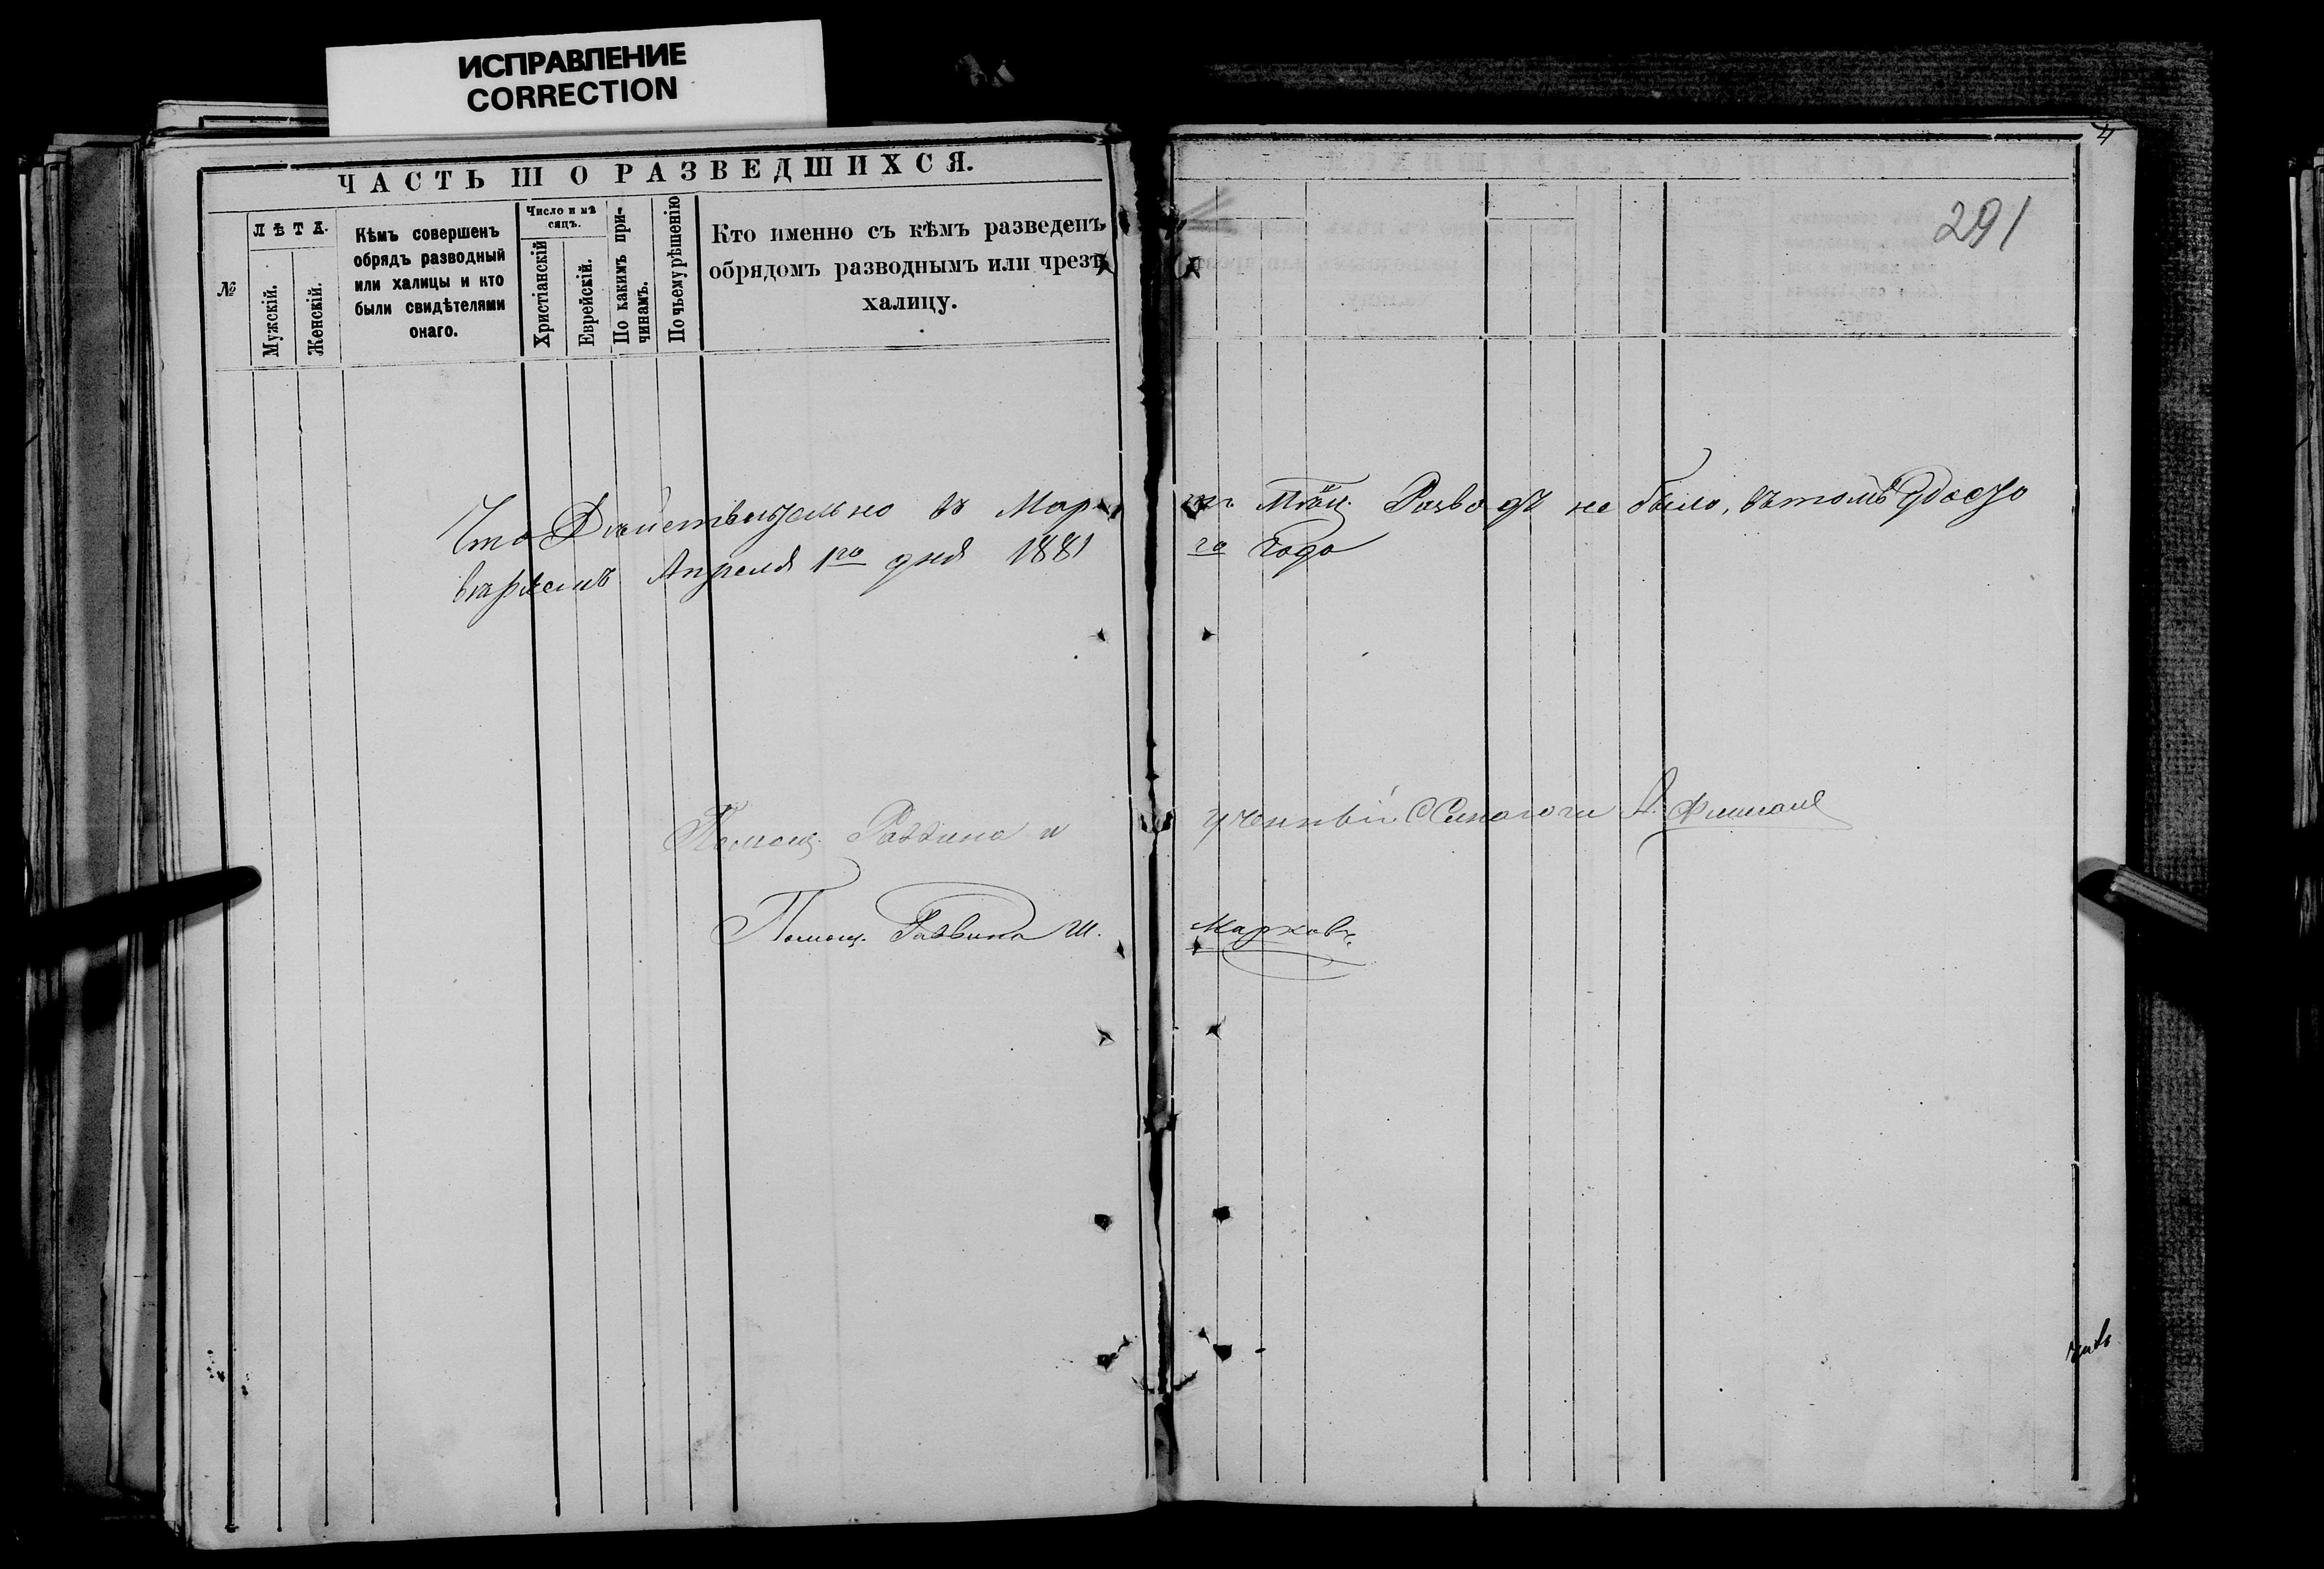 ИСПРАВЛЕНИЕ
CORRECTION
ЧАСТЬ III О РАЗВЕДШИХСЯ.
№
ЛѢТА.
Мужскій.
Женскій.
Кѣмъ совершенъ
обрядъ разводный
или халицы и кто
были свидѣтелями
онаго.
Число и мѣ
сяцъ.
Христіанскій
Еврейскій.
По какимъ при-
чинамъ.
По чьему рѣшенію
Кто именно съ кѣмъ разведенъ
обрядомъ разводнымъ или чрезъ
халицу.
4
291
Что Дѣйствительно въ Мар тѣ Мѣсц. Разводъ не было, въ томъ Удосто
вѣряемъ Апреля 1го дня 1881 го Года
Помощ. Раввина и ученный Синагоги А.
Помощ. Раввина Ш. Марковъ